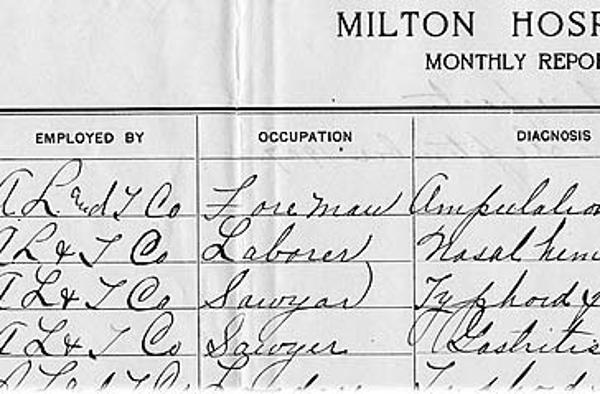 MILTON HOSP
MONTHLY REPOR
EMPLOYED BY OCCUPATION DIAGNOSIS
A L and T Co Foreman Amputation
A L & T Co Laborer Nasal hem
A L & T Co Sawyar Typhoid
A L & T Co Sawyer Gastritis
A L & T Co